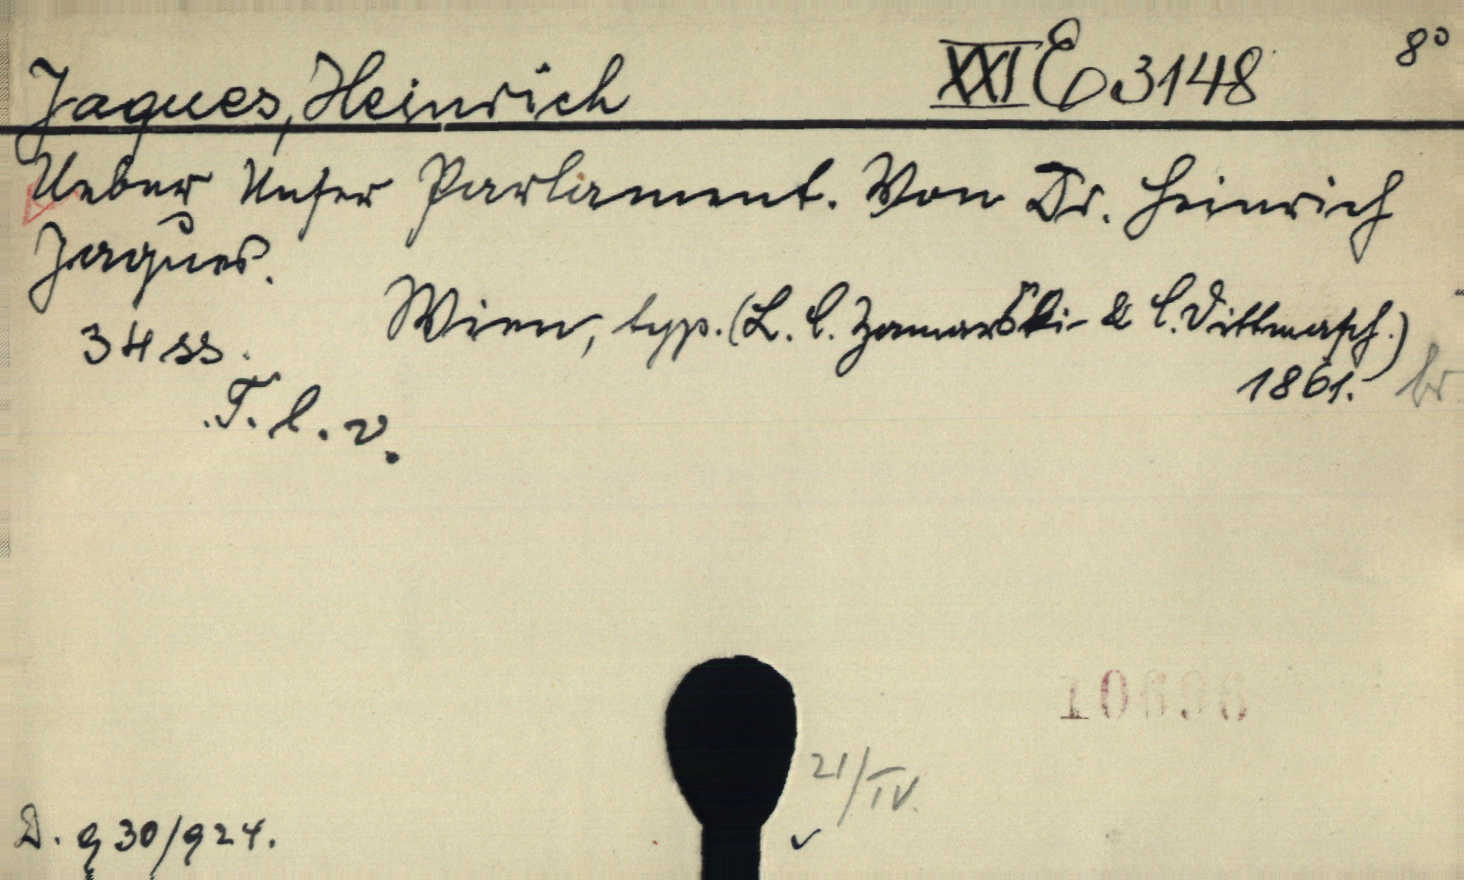 Jaques, Heinrich XXI E 3148 8°
Ueber Unser Parlament. Von Dr. Heinrich
Jaques.
Wien, typ. (L. C. Zamarski & C. Dittmarsch.)
34 ss. 1861. br.
T. l. v.
10696
21/IV.
D. 930/924.